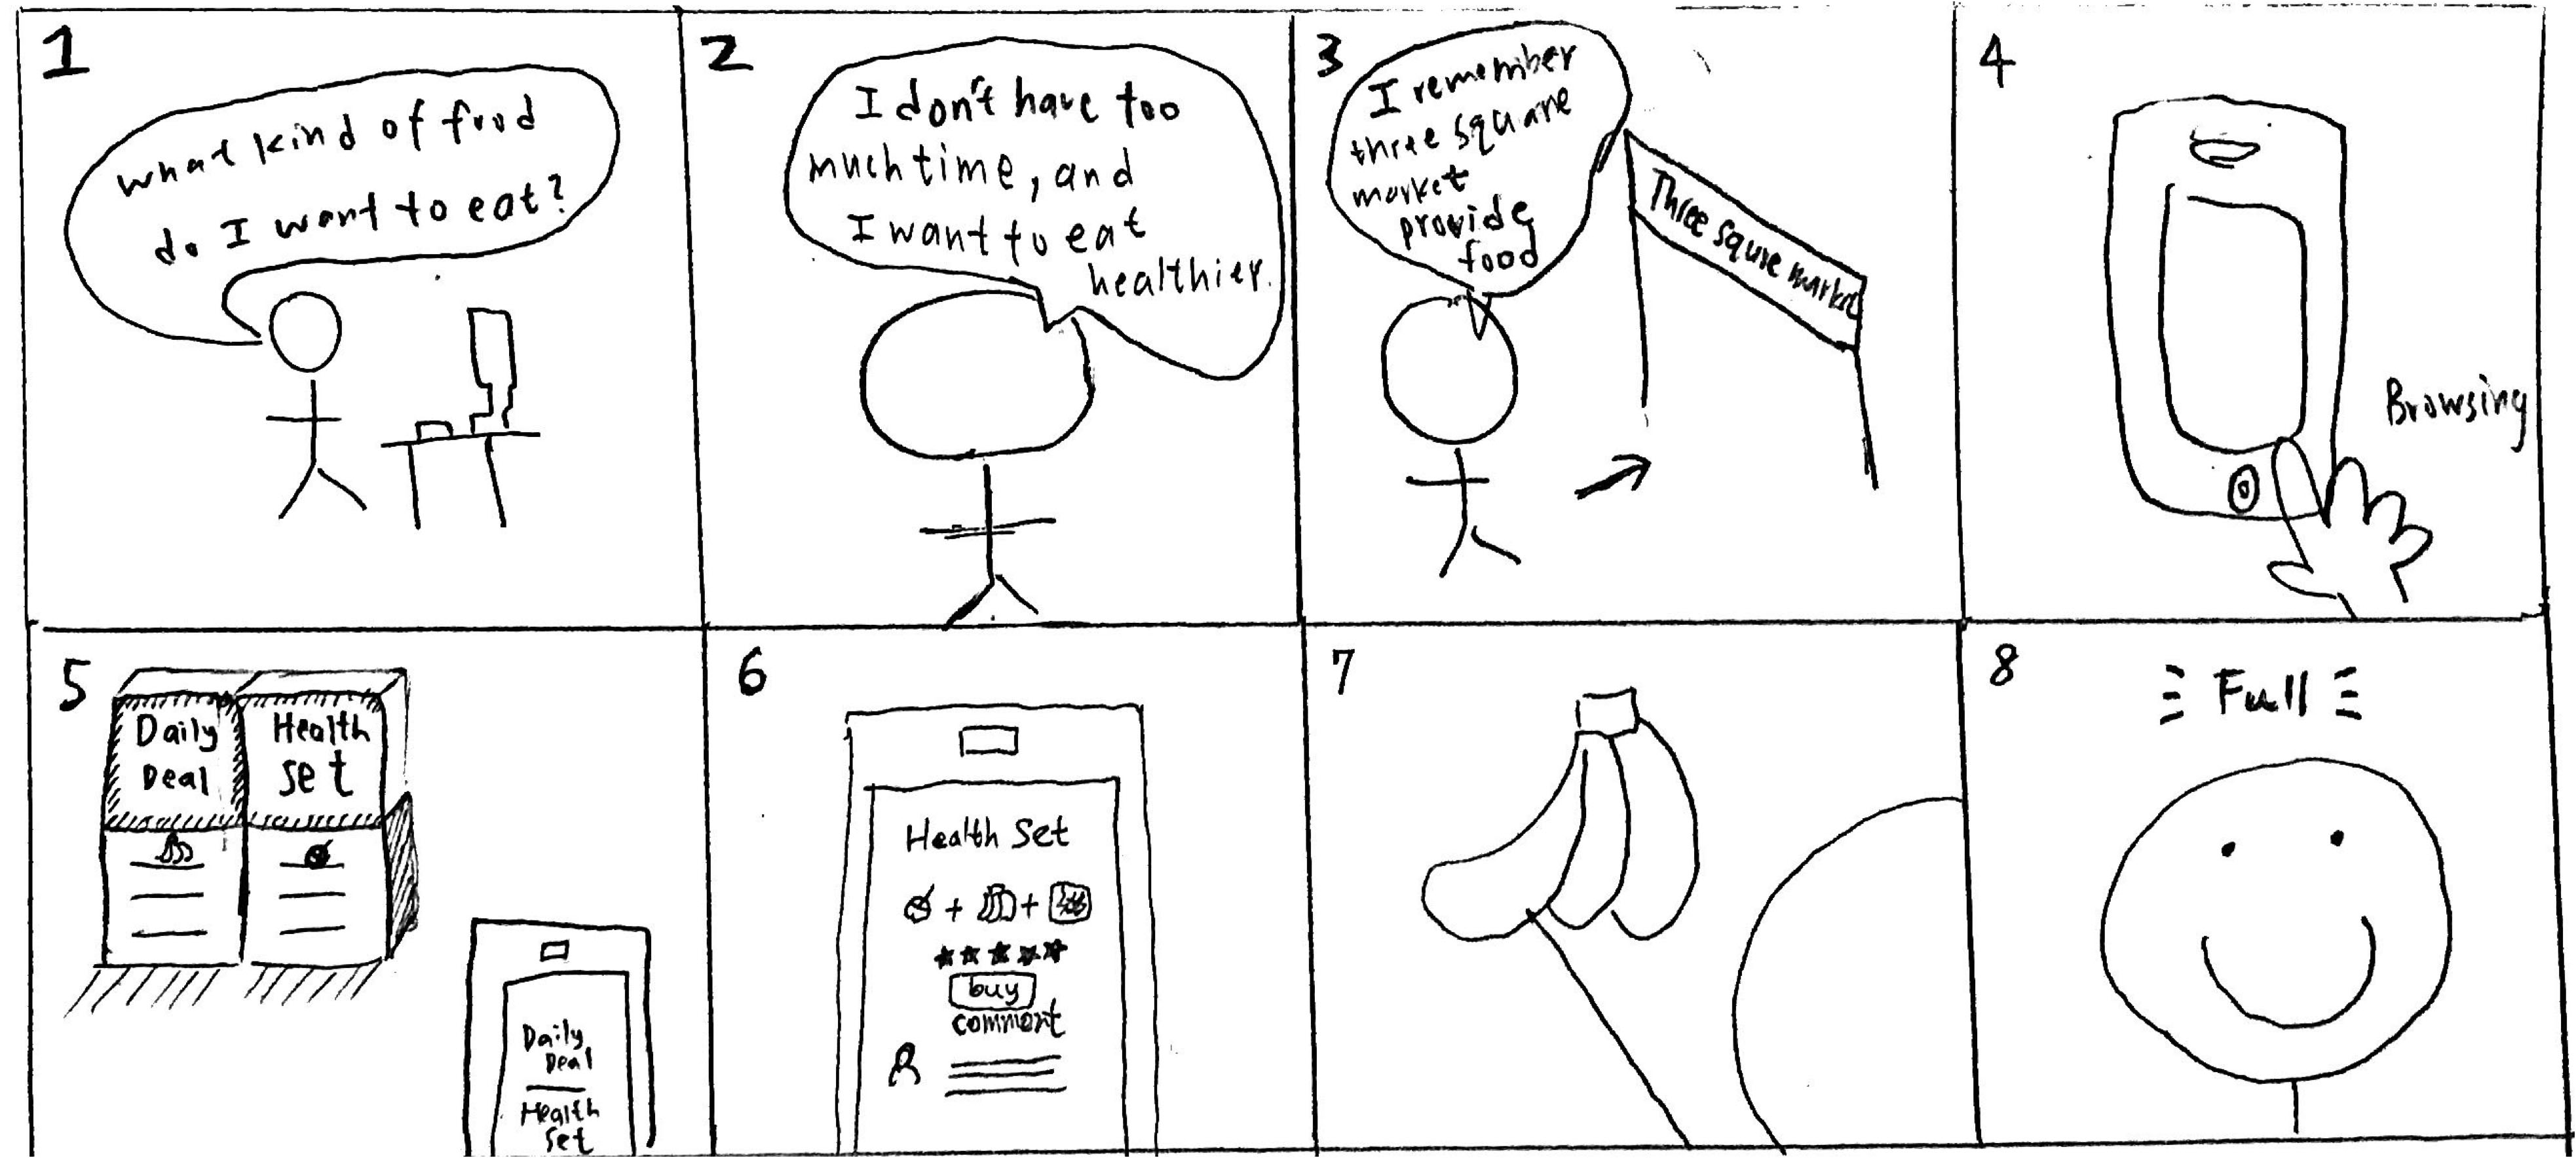 1
what kind of food
do I want to eat?
2
I don't have too
much time, and
I want to eat
healthier.
3
I remember
three square
market
provide
food
Three squre market
4
Browsing
5
Daily
Deal
Health
set
Daily
Deal
Health
set
6
Health Set
+ +
★★★★★
buy
comment
7
8
Full